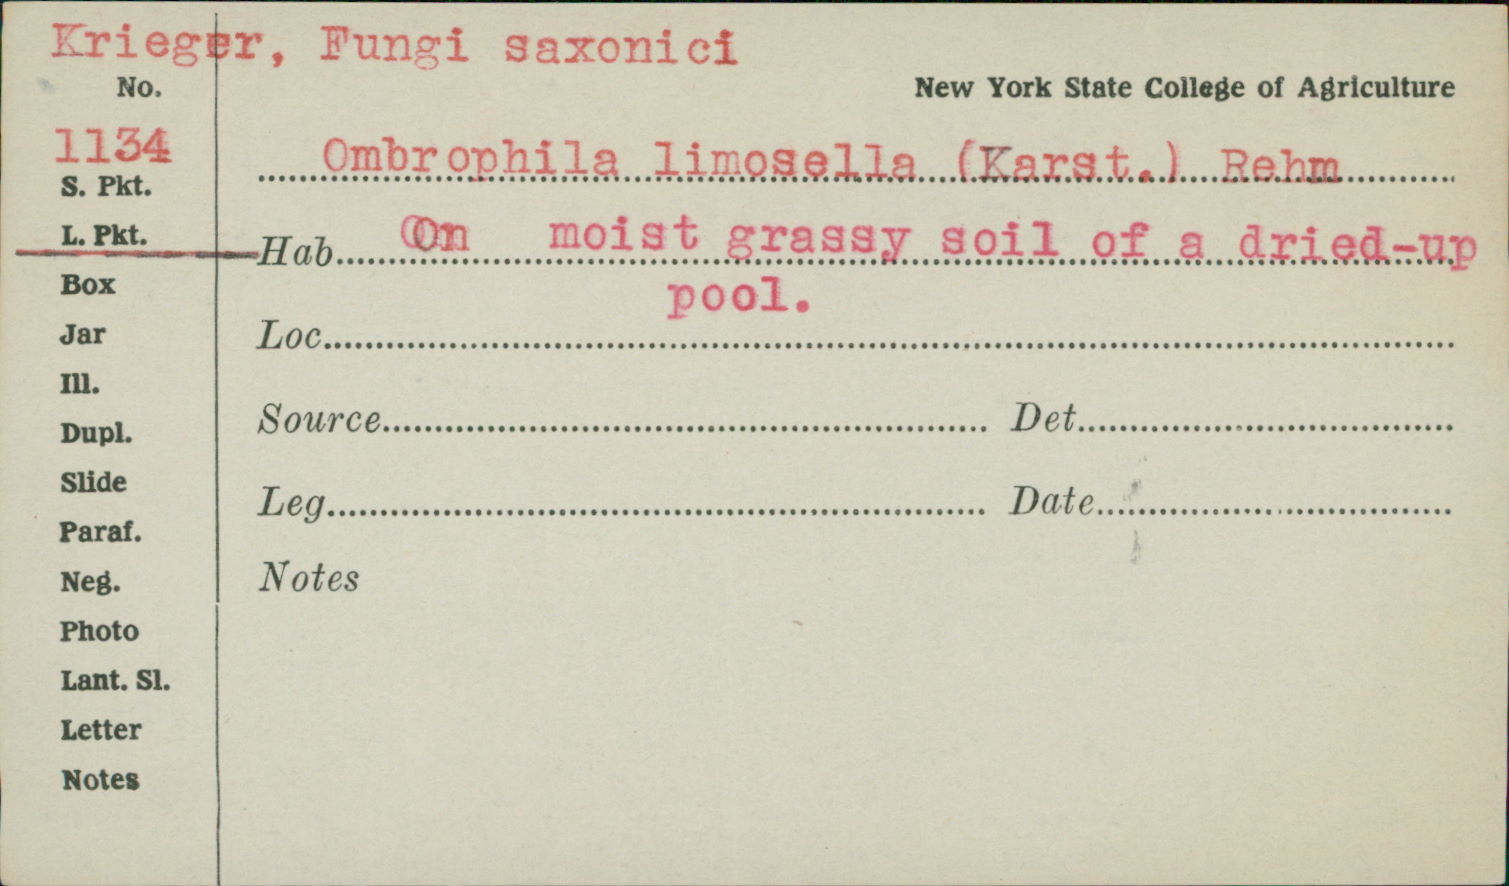 Krieger, Fungi saxonici
No.
New York State College of Agriculture
1134
Ombrophila limosella (Karst.) Rehm
S. Pkt.
L. Pkt.
Hab. On moist grassy soil of a dried-up
pool.
Box
Jar
Loc.
Ill.
Dupl.
Source Det.
Slide
Leg. Date
Paraf.
Neg.
Notes
Photo
Lant. Sl.
Letter
Notes